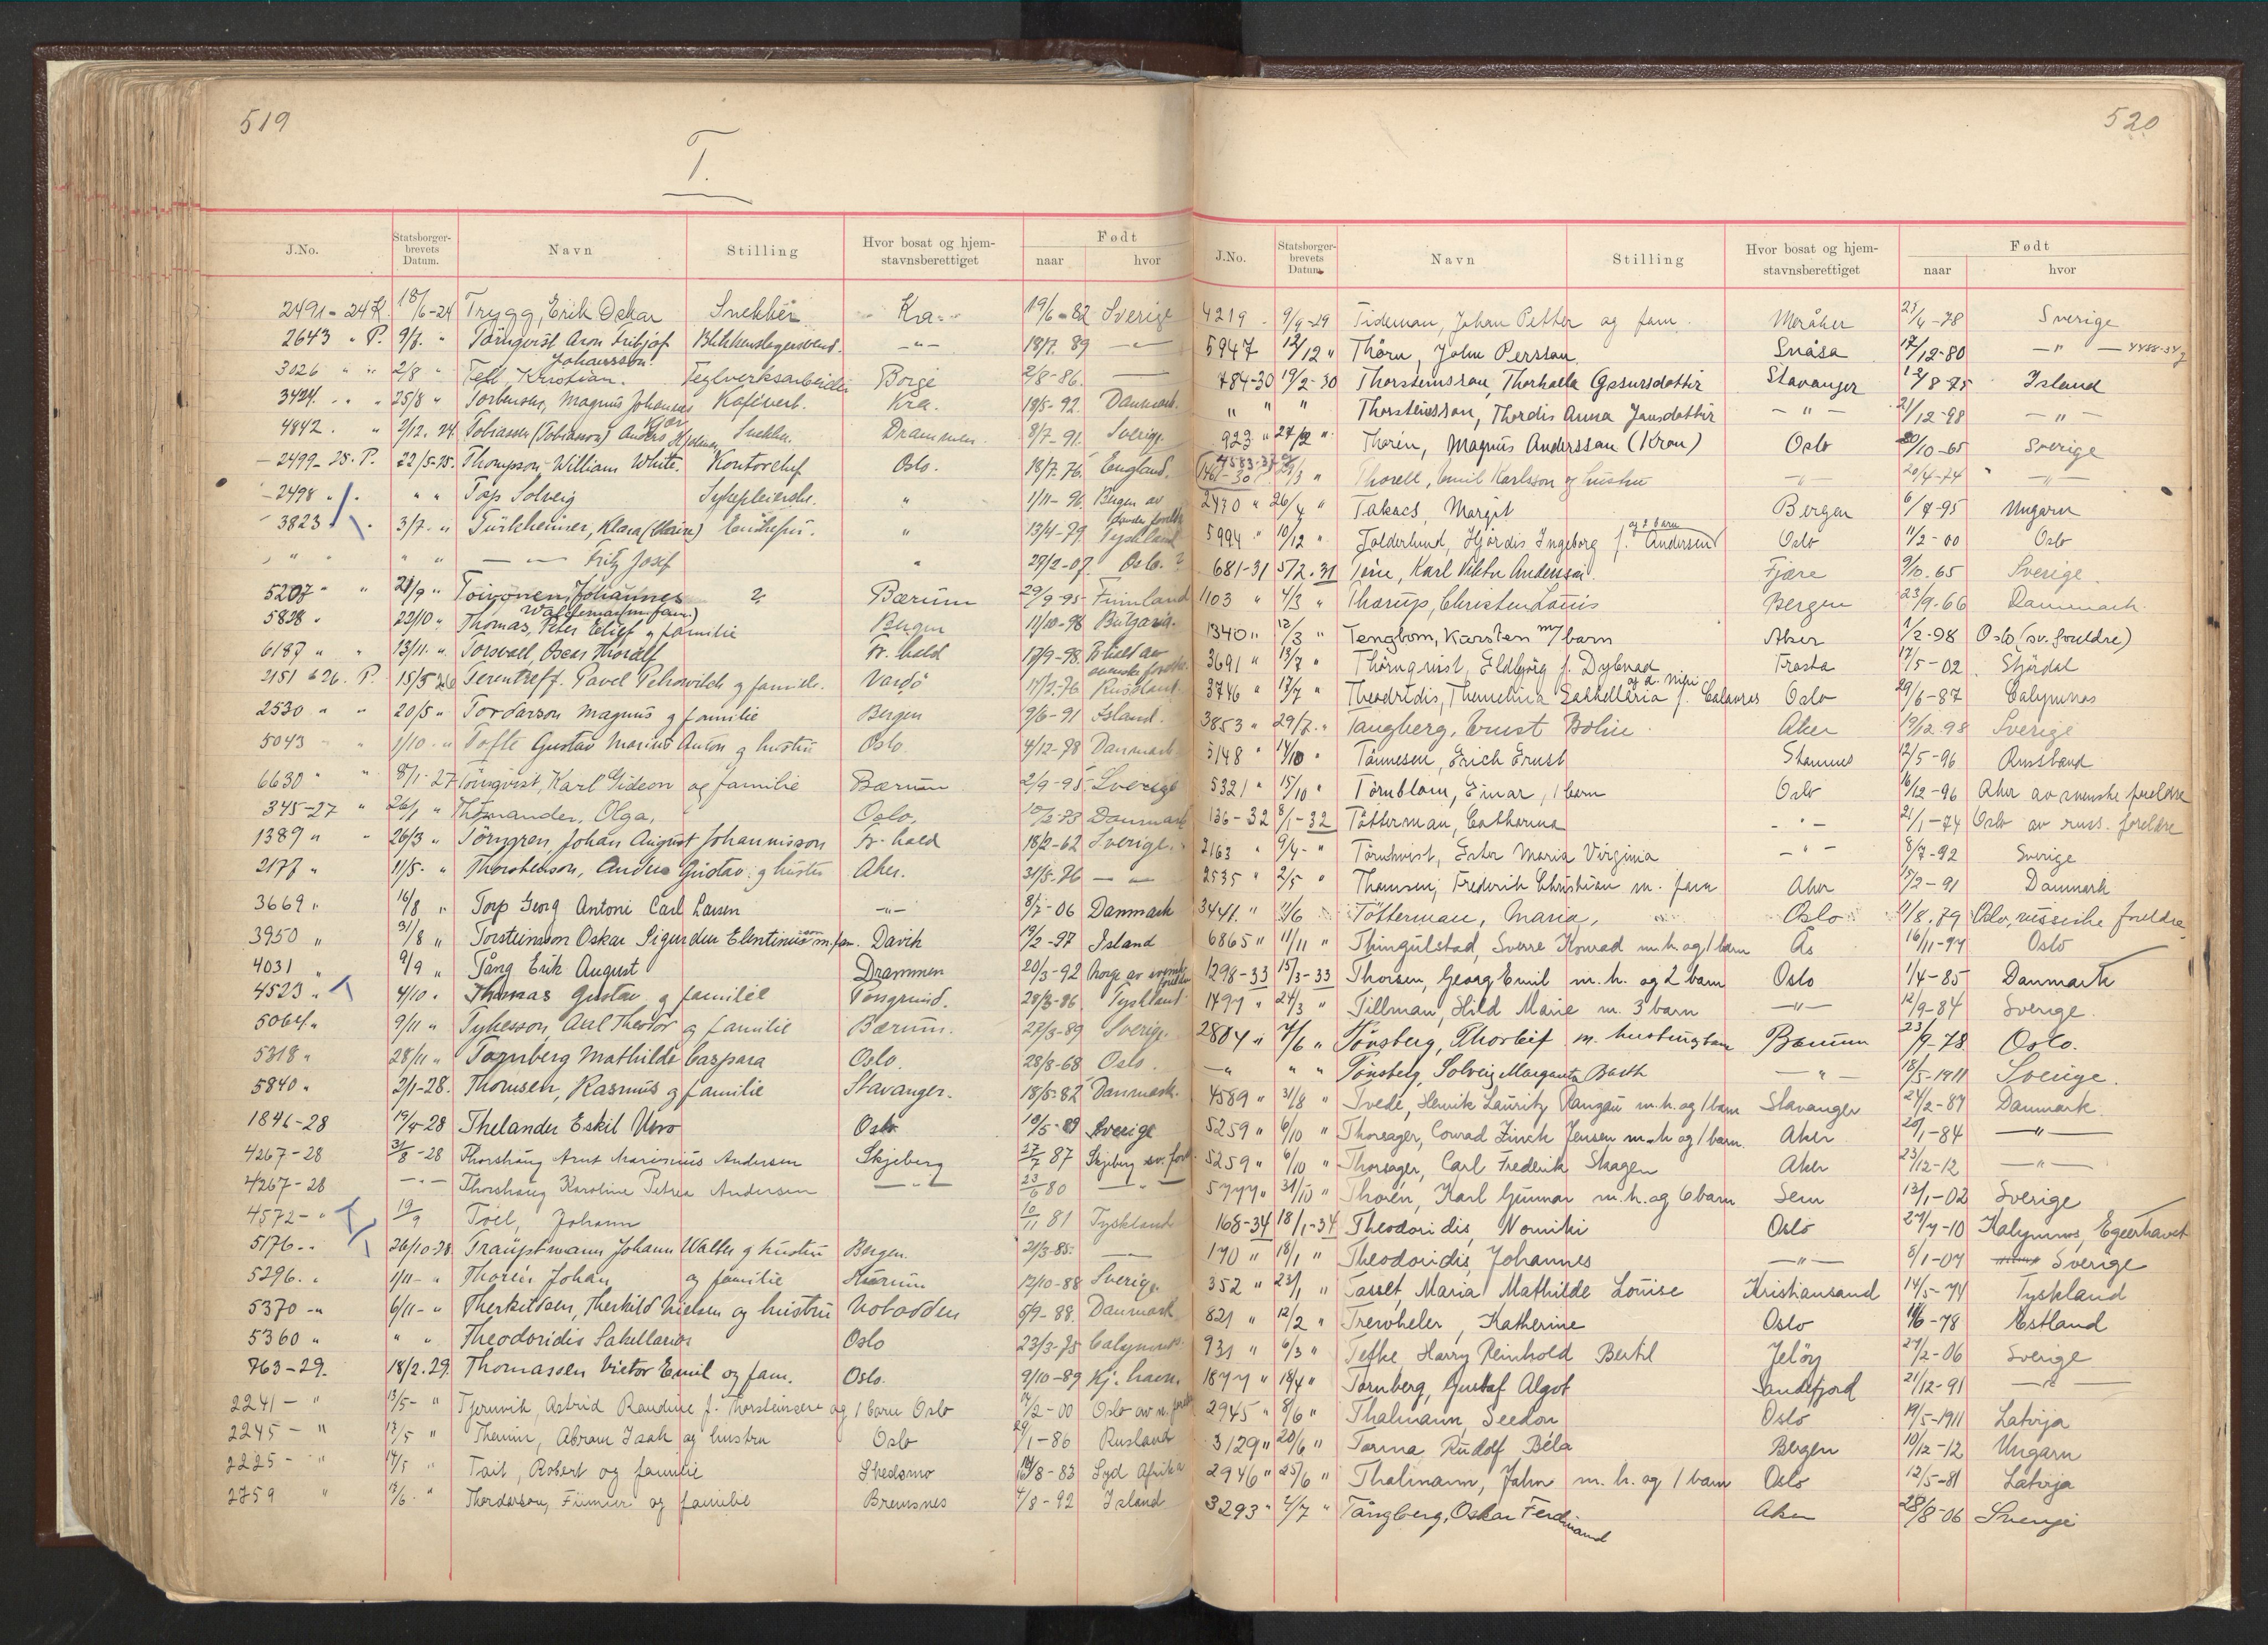 519
T.
J.No. Statsborger-brevets Datum. Navn Stilling Hvor bosat og hjem-stavnsberettiget Født naar hvor
2491-24 R. 18/6-24 Trygg, Erik Oskar Snekker Kra. 19/6-82 Sverige
2643 " P. 9/7. " Törnqvist Aron Fritjof Blikkenslagersvend. -"- 18/7. 89 -"-
Johansson.
3026 " " 2/8 " Tell, Kristian. Teglverksarbeider Borge 2/8-86.
3424. " " 25/8 " Torbensen, Magnus Johannes Kafévert. Kra. 19/5-92. Danmark.
4842. " 2/12. 24 Tobiassen (Tobiasson) Anders Snekker. Drammen. 8/7-91. Sverige
2499-25. P. 22/5-25. Thompson William White. Kontorchef Oslo. 18/7. 76. England.
2498 " " " Tap Solveig Sykepleierske. " 1/11-96. Bergen av
3823 " 3/7. " Türkheimer, Klara (Clara) Enkefru. " 13/4-79 Tyskland
" " " " — " — Fritz Josef " 29/2-07. Oslo. ?
5207 " " 21/9 " Toivonen, Johannes ? Bærum 29/9-95 Finnland
Waldemar (m. fam.)
5828 " 22/10 " Thomas, Peter Elief og familie Bergen 11/10-98 Bulgaria.
6187 " " 13/11. " Torsvall, Oscar Thoralf Fr. hald 17/9-98.
2151 - 26. P. 15/5 26 Terentieff. Pavel Petrowitch og familie. Vardö 17/2-76 Russland.
2530 " " 20/5 " Tordarson Magnus og familie Bergen 9/6-91 Island.
5043 " 1/10. " Tofte Gustav Marius Anton og hustru Oslo. 4/12-78 Danmark
6630 " " 8/1-27 Törnqvist, Karl Gideon og familie Bærum 2/9-95 Sverige
345-27 " 26/1 " Thomander, Olga, Oslo, Danmark
1389 " " 26/3 " Törngren, Johan August Johannisson Fr. hald 18/2-62 Sverige.
2177 " 11/5. " Thorstenson, Anders Gustav og hustru Aker. 31/5-76 — " —
3669 " 16/8 " Torp Georg Antoni Carl Larsen -"- 8/7-06 Danmark
3950 " 31/8 " Torsteinsson Oskar Sigurdur Elentinus m. fam. Davik 19/2-97 Island
4031 " 9/9 " Tång Erik August Drammen 20/3-92 Norge av svenske foreldre
4523 " 4/10. Thomas Gustav og familie Porsgrund. 28/3-86 Tyskland
5064 " 9/11 " Tykesson, Axel Theodor og familie Bærum. 22/3-89 Sverige.
5318 " 28/11 " Tornberg Mathilde Caspara Oslo. 28/8-68 Oslo.
5840 " 2/1-28. Thomsen, Rasmus og familie Stavanger. 18/5-82 Danmark.
1846-28 19/4-28 Thelander Eskil Uno Oslo Sverige
4267-28 31/8-28 Thorshaug Arnt Marinius Andersen Skjeberg 27/7 87 Skjeberg sv. for.
4267-28 -"- Thorshaug Karoline Petrea Andersen — " — 23/6 80 — " —
4572- " 19/9 Toel, Johann 10/11 81 Tyskland
5176. " 26/10-28 Traüptmann Johann Walter og hustru Bergen. 21/3-85.
5296. " 1/11- " Thorén Johan og familie 12/10-88 Sverige.
5370 -" 6/11- " Therkildsen, Therkild Nielsen og hustru Notodden 5/9-88. Danmark
5360 " " " Theodoridis Sakellarios Oslo 23/3-75 Calymnos.
763-29. 18/2. 29. Thomassen Victor Emil og fam. Oslo. 9/10-89 Kj. havn
2241- " 13/5- " Tjernvik, Astrid Randine f. Thorsteinsen og 1 barn Oslo 14/2-00 Oslo av
2245- " 13/5 " Themin, Abram Isak og hustru Oslo 29/1-86 Rusland
2225- " 14/5 " Tait, Robert og familie Skedsmo 8-83 Syd Afrika
2759 " 13/6. " Thorderson, Finnur og familie Bremsnes 4/8-92 Island
520
J.No. Statsborger-brevets Datum. Navn Stilling Hvor bosat og hjem-stavnsberettiget Født naar hvor
4219 9/9-29 Tideman, Johan Petter og fam. Meråker 25/4-78 Sverige
5947 12/12 " Thörn, John Persson Snåsa 17/12-80 — " — 4488-34
784-30 19/2-30 Thorsteinsson, Thorhalla Gssursdottir Stavanger 12/8-75 Island
" " " Thorsteinsson, Thordis Anna Jonsdottir — " — 21/12-98 — " —
923 " 27/2 " Thorén, Magnus Andersson (Kron) Oslo 20/10-65 Sverige
4583-37
1461-30 29/3 " Thorell, Emil Karlsson og hustru — " — 20/4-74 — " —
2470 " 26/4 " Takacs, Margit Bergen 6/7-95 Ungarn
og 2 barn
5994 " 10/12 " Tolderlund, Hjördis Ingeborg f. Andersen Oslo 11/2-00 Oslo
681-31 5/2. 31 Karl Viktor Anderssen. Fjære 9/10. 65 Sverige
1103 " 4/3 " Thorup, Christen Louis Bergen 23/9-66 Danmark
1340 " 12/3 " Tengbom, Karsten m/ barn Aker 1/2-98 Oslo (sv. foreldre)
3691 " 13/7 " Thörnqvist, Eldbjörg f. Dybvad Frosta 17/5-02 Stjørdal
3746 " 17/7 " Theodridis, Themelina Sakkellaria f. Calavros Oslo 29/6-87 Calymnos
3853 " 29/7. " Tangberg, Ernst Bolin Aker 19/12. 98 Sverige
5148 " 14/10 " Tönnesen, Erich Ernst Stamnes 12/5-96 Russland
5321 " 15/10 " Törnblom, Einar, 1 barn Oslo 16/12-96 Aker av svenske foreldre
136-32 8/1-32 Tötterman, Catharina -"- 21/1-74 Oslo av russ. foreldre
2163 " 9/4- " Törnkvist, Ester Maria Virginia — " — 8/7-92 Sverige
2535 " 2/5 " Thomsen, Frederik Christian m. fam Aker 15/2-91 Danmark
3441. " 11/6 Tötterman, Maria, Oslo 11/8. 79 Oslo, russiske foreldre
6865 " 11/11 " Thingulstad, Sverre Konrad m. h. og 1 barn Ås 16/11-94 Oslo
1298-33 15/3-33 Thorsen, Georg Emil m. h. og 2 barn Oslo 1/4-85 Danmark
1497 " 24/3 " Tillman, Hild Marie m. 3 barn — " — 12/9-84 Sverige.
2804 " 7/6 " Tönsberg, Thorleif m. hustru og barn Bærum 23/9-78 Oslo.
— " " " Tönsberg, Solveig Margareta Barth — " — 18/5-1911 Sverige.
4589 " 31/8 " Tvede, Henrik Lauritz Rangau m. h. og 1 barn Stavanger 24/2-87 Danmark.
5259 " 6/10 " Thorsager, Conrad Zinck Jensen m. h. og 1 barn. Aker 20/1-84 — " —
5259 " 6/10 " Thorsager, Carl Frederik Skagen Aker 23/12-12 — " —
5777 " 31/10 " Thorén, Karl Gunnar m. h. og 6 barn Sem 13/1-02 Sverige
168-34 18/1-34 Theodoridis, Nomiki Oslo 27/7-10 Kalymnos, Egeerhavet
170 " 18/1 " Theodoridis, Johannes — " — 8/1-07 Sverige
352 " 23/1 " Tasset, Maria Mathilde Louise Kristiansand 14/5-74 Tyskland
821 " 12/2 " Trewheler, Katherine Oslo 11/6-78 Estland
931 " 6/3 " Tefke, Harry Reinhold Bertil Jeløy 27/2-06 Sverige
1877 " 18/4 " Tornberg, Gustaf Algot Sandefjord 21/12-91 — " —
2945 " 8/6 " Thalmann, Seedon Oslo 19/5-1911 Latvija
3129 " 20/6 " Torma, Rudolf Béla Bergen 10/12-12 Ungarn
2946 " 25/6 " Thalmann, John m. h. og 1 barn Oslo 12/5-81 Latvija
3293 " 4/7 " Tångberg, Oskar Ferdinand Aker 28/8-06 Sverige